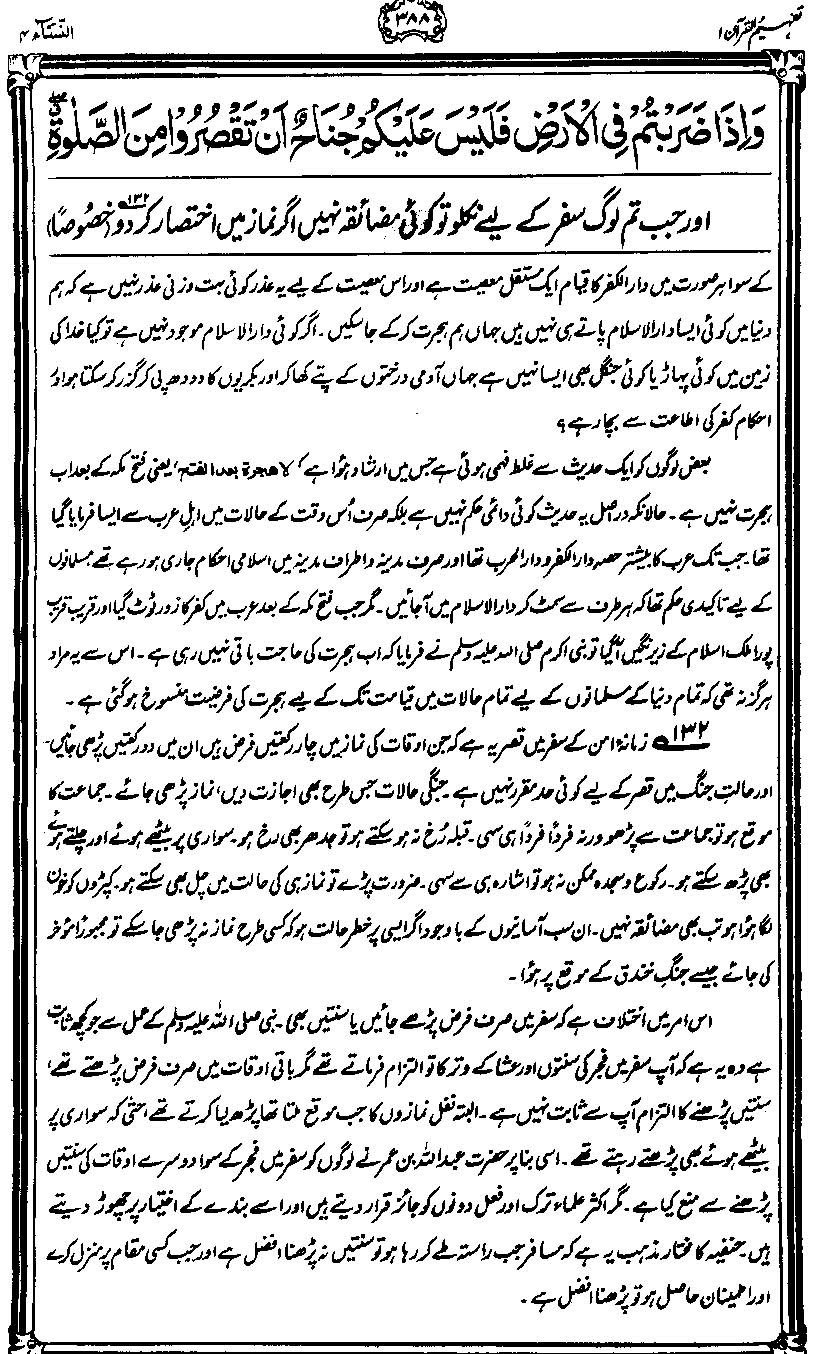 تفہیم القرآن ۱
۳۸۸
النساء ۴
وَاِذَا ضَرَبْتُمْ فِی الْاَرْضِ فَلَیْسَ عَلَیْکُمْ جُنَاحٌ اَنْ تَقْصُرُوْا مِنَ الصَّلٰوةِ
اور جب تم لوگ سفر کے لیے نکلو تو کوئی مضائقہ نہیں اگر نماز میں اختصار کر دو ۱۳۲ (خصوصًا)
کے سوا ہر صورت میں دارالکفر کا قیام ایک مستقل معصیت ہے اور اس معصیت کے لیے یہ عذر کوئی بہت وزنی عذر نہیں ہے کہ ہم
دنیا میں کوئی ایسا دارالاسلام پاتے ہی نہیں ہیں جہاں ہم ہجرت کر کے جا سکیں۔ اگر کوئی دارالاسلام موجود نہیں ہے تو کیا خدا کی
زمین میں کوئی پہاڑ یا کوئی جنگل بھی ایسا نہیں ہے جہاں آدمی درختوں کے پتے کھا کر اور بکریوں کا دودھ پی کر گزر کر سکتا ہو اور
احکام کفر کی اطاعت سے بچا رہے؟
بعض لوگوں کو ایک حدیث سے غلط فہمی ہوئی ہے جس میں ارشاد ہوا ہے ’لا ھجرة بعد الفتح‘ یعنی فتح مکہ کے بعد اب
ہجرت نہیں ہے۔ حالانکہ دراصل یہ حدیث کوئی دائمی حکم نہیں ہے بلکہ صرف اُس وقت کے حالات میں اہلِ عرب سے ایسا فرمایا گیا
تھا۔ جب تک عرب کا بیشتر حصہ دارالکفر و دارالحرب تھا اور صرف مدینہ و اطراف مدینہ میں اسلامی احکام جاری ہو رہے تھے مسلمانوں
کے لیے تاکیدی حکم تھا کہ ہر طرف سے سمٹ کر دارالاسلام میں آجائیں۔ مگر جب فتح مکہ کے بعد عرب میں کفر کا زور ٹوٹ گیا اور قریب قریب
پورا ملک اسلام کے زیر نگیں آگیا تو نبی اکرم صلی اللہ علیہ وسلم نے فرمایا کہ اب ہجرت کی حاجت باقی نہیں رہی ہے۔ اس سے یہ مراد
ہرگز نہ تھی کہ تمام دنیا کے مسلمانوں کے لیے تمام حالات میں قیامت تک کے لیے ہجرت کی فرضیت منسوخ ہو گئی ہے۔
۱۳۲ زمانۂ امن کے سفر میں قصر یہ ہے کہ جن اوقات کی نماز میں چار رکعتیں فرض ہیں ان میں دو رکعتیں پڑھی جائیں۔
اور حالتِ جنگ میں قصر کے لیے کوئی حد مقرر نہیں ہے۔ جنگی حالات جس طرح بھی اجازت دیں، نماز پڑھی جائے۔ جماعت کا
موقع ہو تو جماعت سے پڑھو ورنہ فردًا فردًا ہی سہی۔ قبلہ رُخ نہ ہو سکتے ہو تو جدھر بھی رخ ہو۔ سواری پر بیٹھے ہوئے اور چلتے ہوئے
بھی پڑھ سکتے ہو۔ رکوع و سجدہ ممکن نہ ہو تو اشارہ ہی سے سہی۔ ضرورت پڑے تو نماز ہی کی حالت میں چل بھی سکتے ہو۔ کپڑوں کو خون
لگا ہوا ہو تب بھی مضائقہ نہیں۔ ان سب آسانیوں کے باوجود اگر ایسی پر خطر حالت ہو کہ کسی طرح نماز نہ پڑھی جا سکے تو مجبورًا مؤخر
کی جائے جیسے جنگِ خندق کے موقع پر ہوا۔
اس امر میں اختلاف ہے کہ سفر میں صرف فرض پڑھے جائیں یا سنتیں بھی۔ نبی صلی اللہ علیہ وسلم کے عمل سے جو کچھ ثابت
ہے وہ یہ ہے کہ آپ سفر میں فجر کی سنتوں اور عشا کے وتر کا تو التزام فرماتے تھے مگر باقی اوقات میں صرف فرض پڑھتے تھے،
سنتیں پڑھنے کا التزام آپ سے ثابت نہیں ہے۔ البتہ نفل نمازوں کا جب موقع ملتا تھا پڑھ لیا کرتے تھے، حتیٰ کہ سواری پر
بیٹھے ہوئے بھی پڑھتے رہتے تھے۔ اسی بنا پر حضرت عبداللہ بن عمر نے لوگوں کو سفر میں فجر کے سوا دوسرے اوقات کی سنتیں
پڑھنے سے منع کیا ہے۔ مگر اکثر علماء ترک اور فعل دونوں کو جائز قرار دیتے ہیں اور اسے بندے کے اختیار پر چھوڑ دیتے
ہیں۔ حنفیہ کا مختار مذہب یہ ہے کہ مسافر جب راستہ طے کر رہا ہو تو سنتیں نہ پڑھنا افضل ہے اور جب کسی مقام پر منزل کرے
اور اطمینان حاصل ہو تو پڑھنا افضل ہے۔